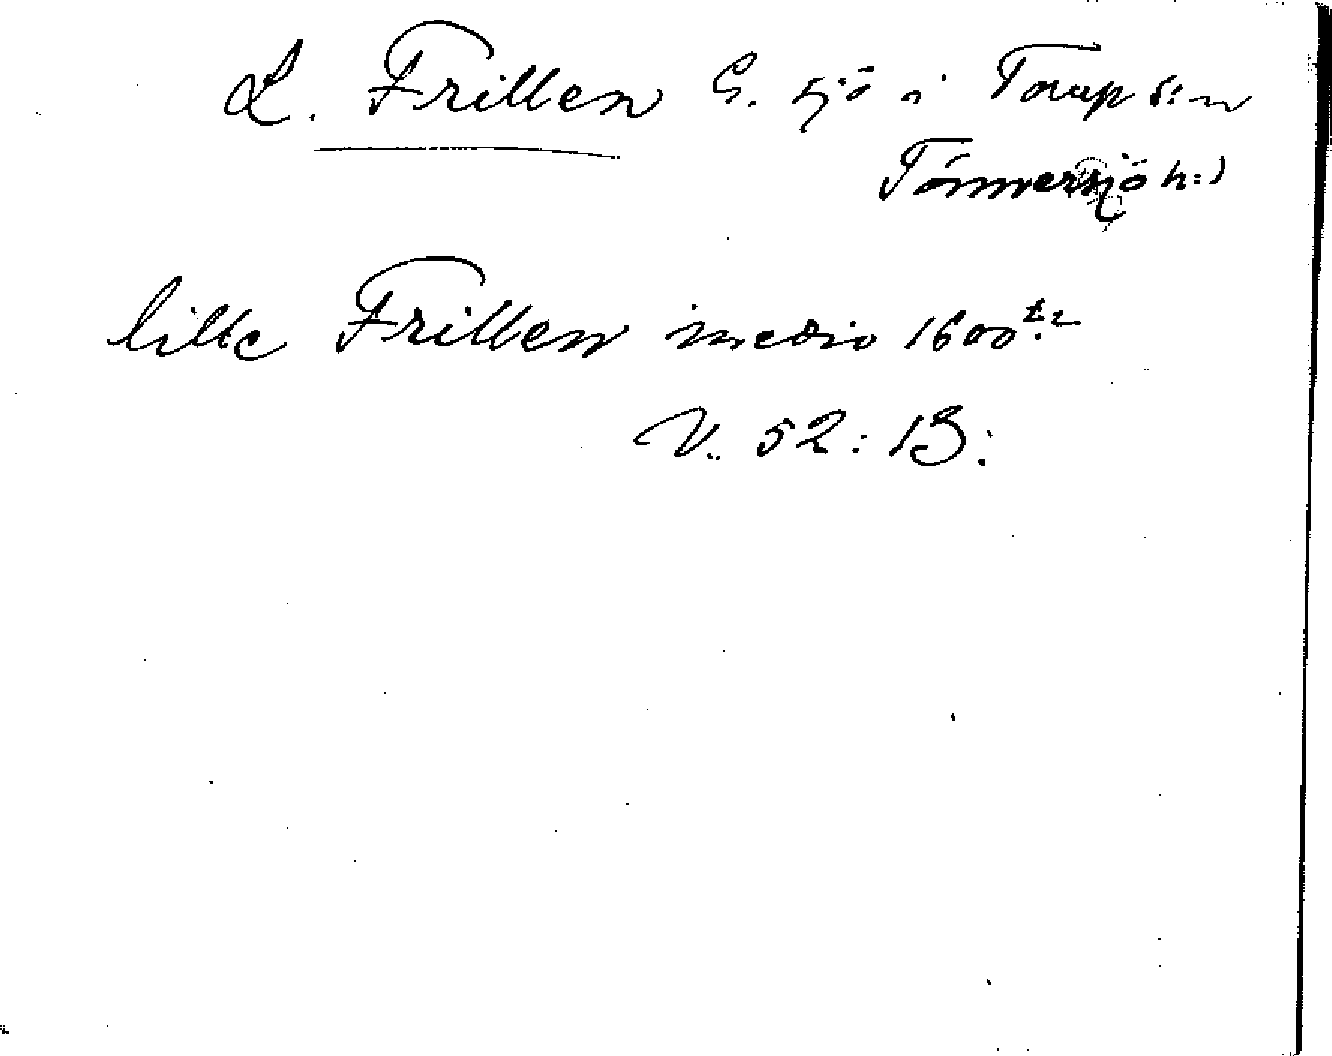 L. Frillen G. sjö i Torup s:n
Tönnersjö h:d
lille Frillen medio 1600 t:
V. 52: 13: